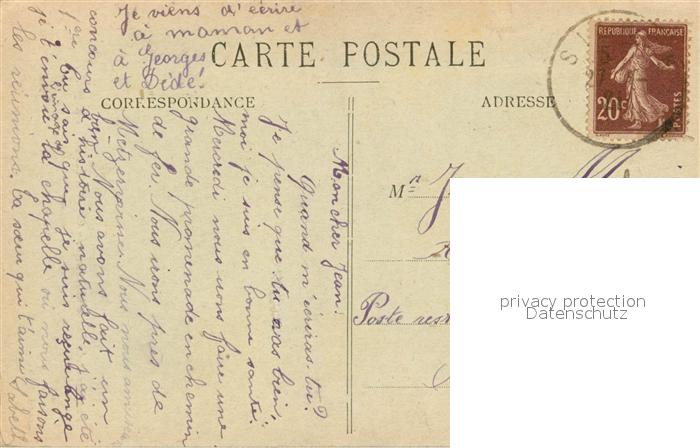 Je viens d'écrire
à maman et
à Georges
et Dédé!
CARTE POSTALE
CORRESPONDANCE
ADRESSE
RÉPUBLIQUE FRANÇAISE
20c
POSTES
Mon cher Jean!
Quand m'écriras-tu?
Je pense que tu vas bien,
moi je suis en bonne santé.
Mercredi nous irons faire une
grande promenade en chemin
de fer. Nous irons près de
Nous nous
bien. Nous avons fait un
concours d'histoire naturelle, j'ai été
1ère. Tu sais que je suis reçue ange
je t'envoie la chapelle où nous faisons
les réunions. Ta sœur qui t'aime
Mr J
Poste res
privacy protection
Datenschutz